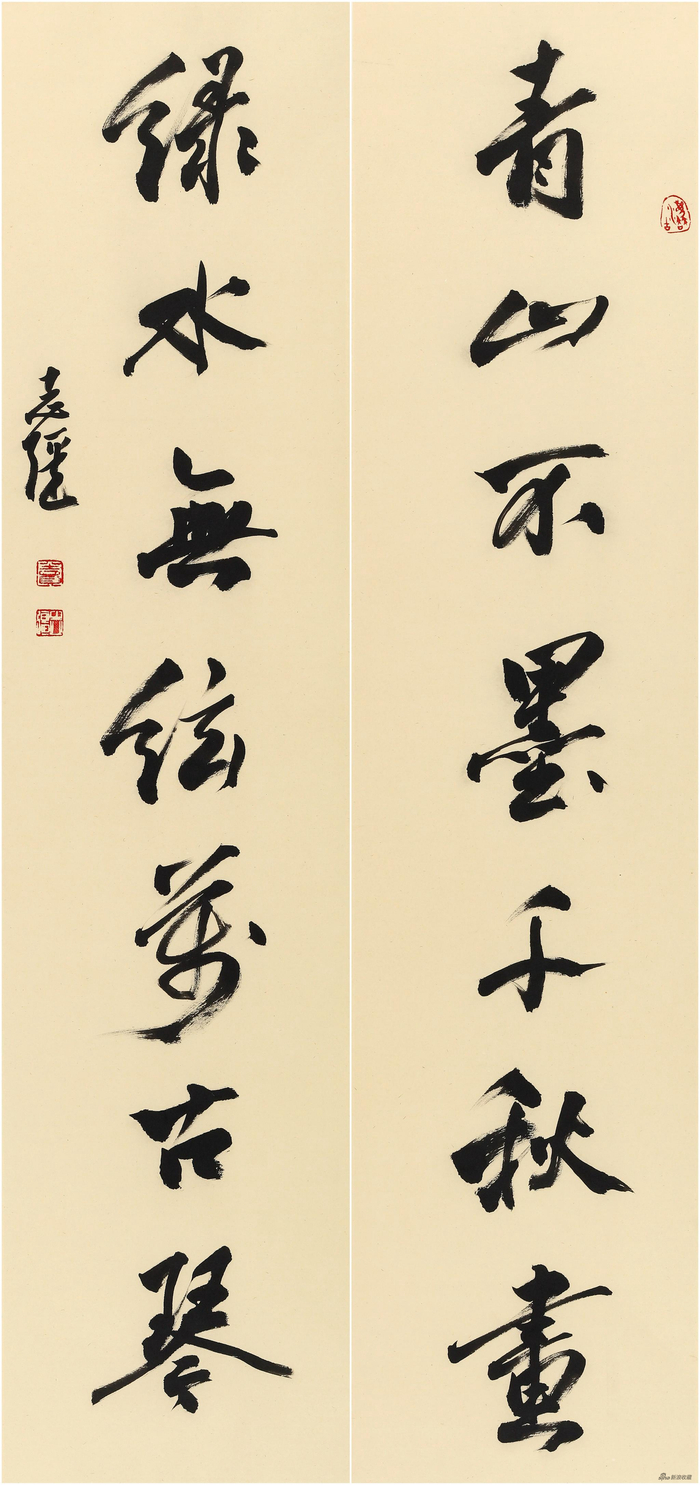 青山不墨千秋畫
綠水無弦萬古琴
新浪收藏